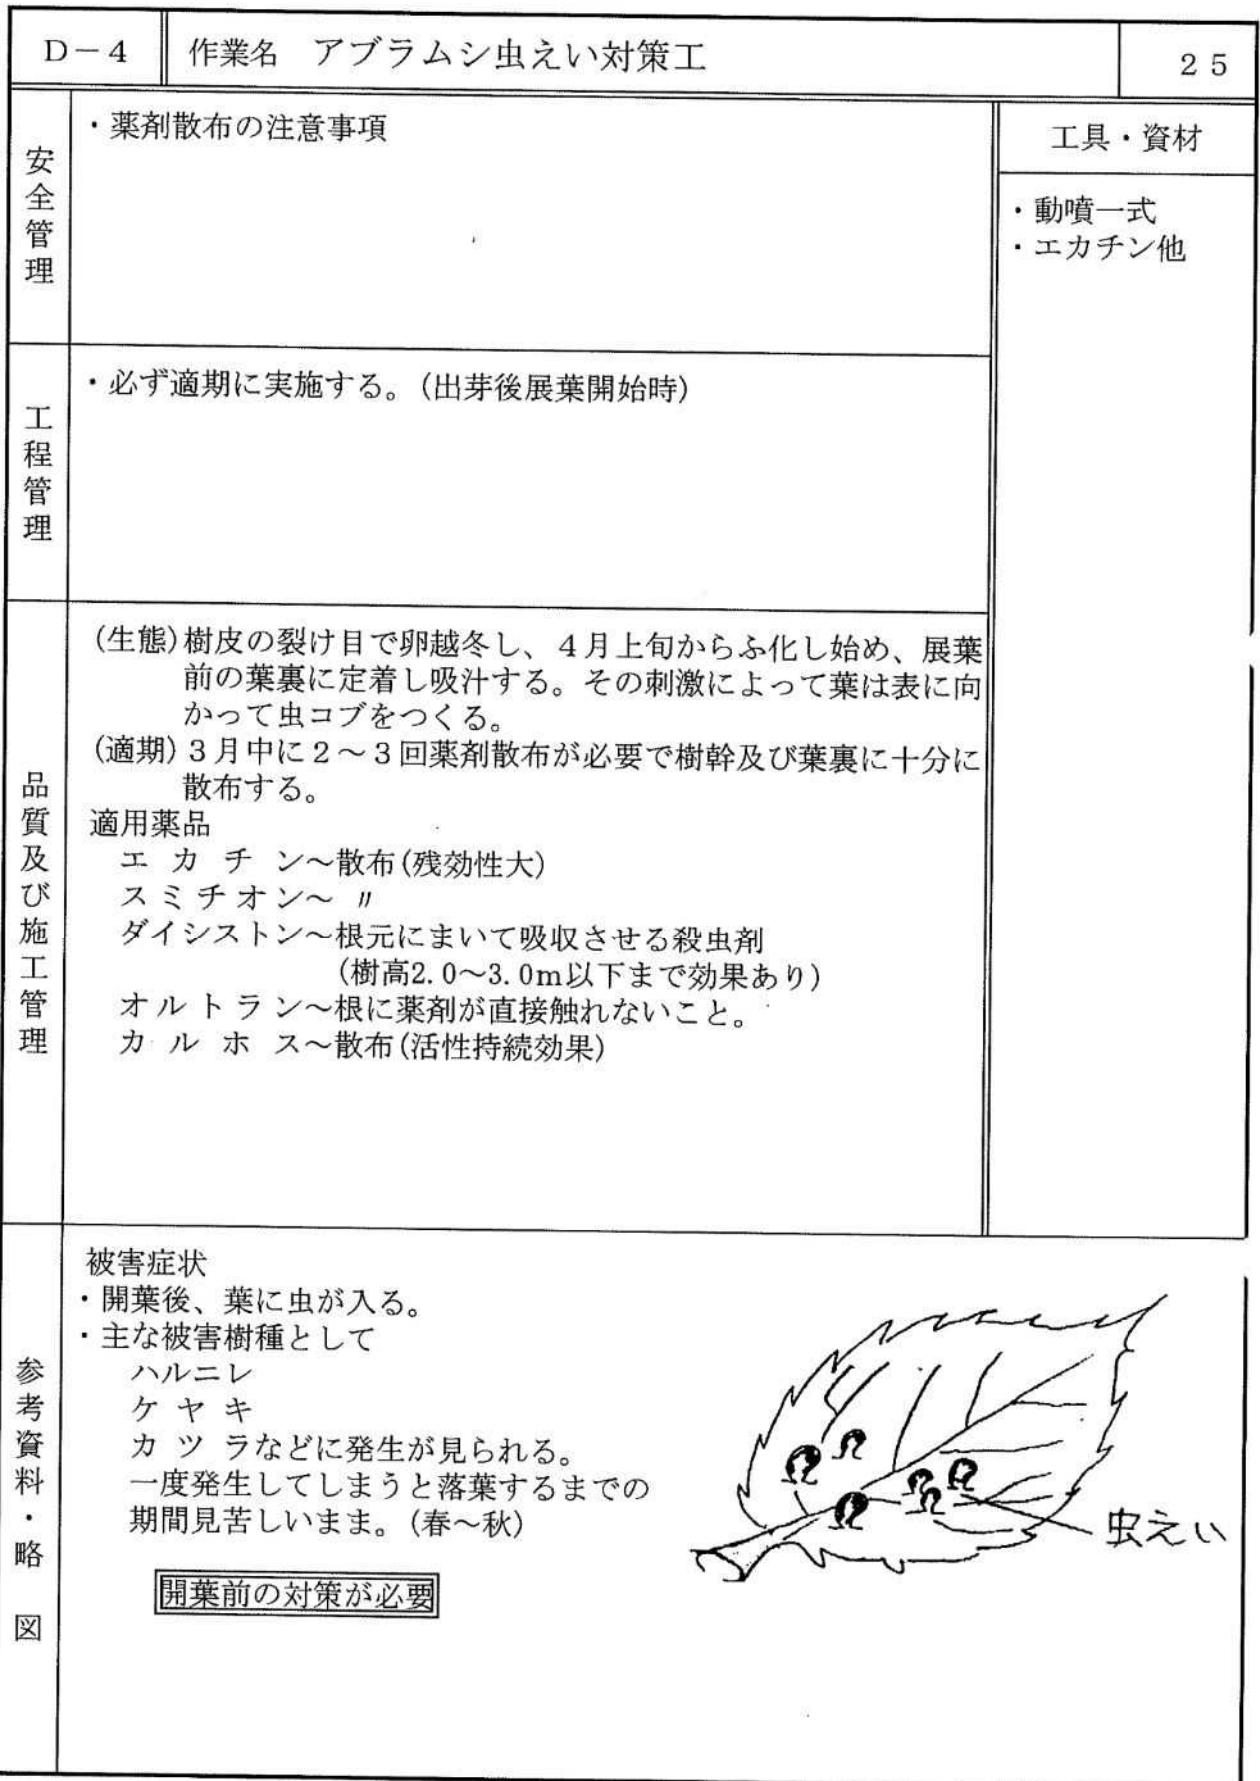 D－4
作業名　アブラムシ虫えい対策工
25
安全管理
・薬剤散布の注意事項
工具・資材
・動噴一式
・エカチン他
工程管理
・必ず適期に実施する。(出芽後展葉開始時)
品質及び施工管理
(生態)樹皮の裂け目で卵越冬し、４月上旬からふ化し始め、展葉
前の葉裏に定着し吸汁する。その刺激によって葉は表に向
かって虫コブをつくる。
(適期)３月中に２～３回薬剤散布が必要で樹幹及び葉裏に十分に
散布する。
適用薬品
エ カ チ ン～散布(残効性大)
スミチオン～ 〃
ダイシストン～根元にまいて吸収させる殺虫剤
(樹高2.0～3.0m以下まで効果あり)
オルトラン～根に薬剤が直接触れないこと。
カ ル ホ ス～散布(活性持続効果)
参考資料・略図
被害症状
・開葉後、葉に虫が入る。
・主な被害樹種として
ハルニレ
ケ ヤ キ
カ ツ ラなどに発生が見られる。
一度発生してしまうと落葉するまでの
期間見苦しいまま。(春～秋)
開葉前の対策が必要
虫えい